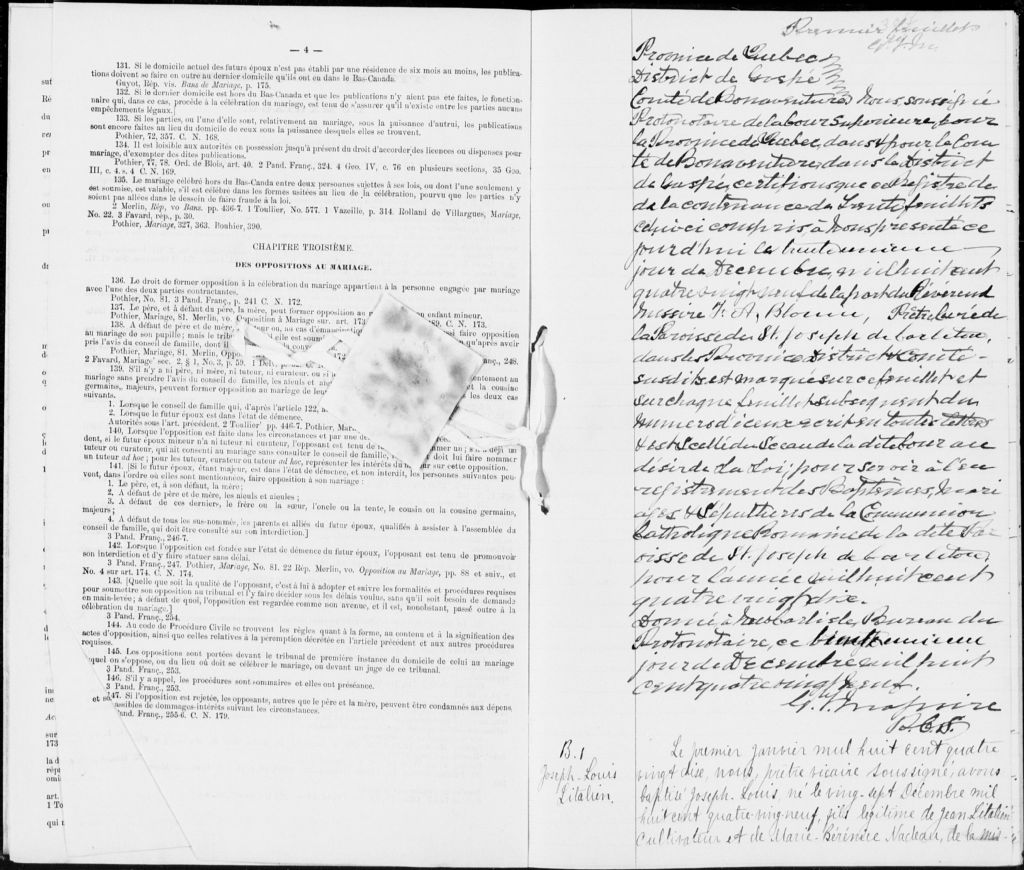 — 4 —
131. Si le domicile actuel des futurs époux n'est pas établi par une résidence de six mois au moins, les publica-
tions doivent se faire en outre au dernier domicile qu'ils ont eu dans le Bas-Canada.
Guyot, Rép. vis. Bans de Mariage, p. 175.
132. Si le dernier domicile est hors du Bas-Canada et que les publications n'y aient pas été faites, le fonction-
naire qui, dans ce cas, procède à la célébration du mariage, est tenu de s'assurer qu'il n'existe entre les parties aucuns
empêchements légaux.]
133. Si les parties, ou l'une d'elles, sont, relativement au mariage, sous la puissance d'autrui, les publications
sont encore faites au lieu du domicile de ceux sous la puissance desquels elles se trouvent.
Pothier, 72, 357. C. N. 168.
134. Il est loisible aux autorités en possession jusqu'à présent du droit d'accorder des licences ou dispenses pour
mariage, d'exempter des dites publications.
Pothier, 77, 78. Ord. de Blois, art. 40. 2 Pand. Franç., 324. 4 Geo. IV, c. 76 en plusieurs sections, 35 Geo.
III, c. 4, s. 4 C. N. 169.
135. Le mariage célébré hors du Bas-Canda entre deux personnes sujettes à ses lois, ou dont l'une seulement y
est soumise, est valable, s'il est célébré dans les formes usitées au lieu de la célébration, pourvu que les parties n'y
soient pas allées dans le dessein de faire fraude à la loi.
2 Merlin, Rép, vo Bans. pp. 436-7. 1 Toullier, No. 577. 1 Vazeille, p. 314. Rolland de Villargues, Mariage,
No. 22. 3 Favard, rép., p. 30.
Pothier, Mariage, 327, 363. Bouhier, 390.
CHAPITRE TROISIÈME.
DES OPPOSITIONS AU MARIAGE.
136. Le droit de former opposition à la célébration du mariage appartient à la personne engagée par mariage
avec l'une des deux parties contractantes.
Pothier, No. 81. 3 Pand. Franç., p. 241 C. N. 172.
137. Le père, et à défaut du père, la mère, peut former opposition au enfant mineur.
Pothier, Mariage, 81. Merlin, vo. Opposition à Mariage sur. art. 173 C. N. 173.
138. A défaut de père et de mère, ou, au cas d'émancipation faire opposition
au mariage de son pupille; mais le elle est soum qu'après avoir
pris l'avis du conseil de famille, dont il
Pothier, Mariage, 81. Merlin, Oppo. 172
2 Favard, Mariage sec. 2, § 1, No. 3, p. 59. 1 anç., 248.
139. S'il n'y a ni père, ni mère, ni tuteur, ni curateur, ou si ntement au
mariage sans prendre l'avis du conseil de famille, les aïeuls et et la cousine
germains, majeurs, peuvent former opposition au mariage de leur les deux cas
suivants.
1. Lorsque le conseil de famille qui, d'après l'article 122, a
2. Lorsque le futur époux est dans l'état de démence.
Autorités sous l'art. précédent. 2 Toullier pp. 446-7. Pothier, Mar
140. Lorsque l'opposition est faite dans les circonstances et par une de déjà un
dent, si le futur époux mineur n'a ni tuteur ni curateur, l'opposant est tenu de
tuteur ou curateur, qui ait consenti au mariage sans consulter le conseil de famille, doit lui faire nommer
un tuteur ad hoc; pour les tuteur, curateur ou tuteur ad hoc, représenter les intérêts du sur cette opposition.
141. [Si le futur époux, étant majeur, est dans l'état de démence, et non interdit, les personnes suivantes peu-
vent, dans l'ordre où elles sont mentionnées, faire opposition à son mariage:
1. Le père, et, à son défaut, la mère;
2. A défaut de père et de mère, les aïeuls et aïeules;
3. A défaut de ces derniers, le frère ou la sœur, l'oncle ou la tante, le cousin ou la cousine germains,
majeurs;
4. A défaut de tous les sus-nommés, les parents et alliés du futur époux, qualifiés à assister à l'assemblée du
conseil de famille, qui doit être consulté sur son interdiction.]
3 Pand. Franç., 246-7.
142. Lorsque l'opposition est fondée sur l'état de démence du futur époux, l'opposant est tenu de promouvoir
son interdiction et d'y faire statuer sans délai.
3 Pand. Franç., 247. Pothier, Mariage, No. 81. 22 Rép. Merlin, vo. Opposition au Mariage, pp. 88 et suiv., et
No. 4 sur art. 174. C. N. 174.
143. [Quelle que soit la qualité de l'opposant, c'est à lui à adopter et suivre les formalités et procédures requises
pour soumettre son opposition au tribunal et l'y faire décider sous les délais voulus, sans qu'il soit besoin de demande
en main-levée; à défaut de quoi, l'opposition est regardée comme non avenue, et il est, nonobstant, passé outre à la
célébration du mariage.]
3 Pand. Franç., 254.
144. Au code de Procédure Civile se trouvent les règles quant à la forme, au contenu et à la signification des
actes d'opposition, ainsi que celles relatives à la péremption décrétée en l'article précédent et aux autres procédures
requises.
145. Les oppositions sont portées devant le tribunal de première instance du domicile de celui au mariage
uquel on s'oppose, ou du lieu où doit se célébrer le mariage, ou devant un juge de ce tribunal.
3 Pand. Franç., 253.
146. S'il y a appel, les procédures sont sommaires et elles ont préséance.
3 Pand. Franç., 253.
147. Si l'opposition est rejetée, les opposants, autres que le père et la mère, peuvent être condamnés aux dépens,
et so assibles de dommages-intérêts suivant les circonstances.
and. Franç., 255-6. C. N. 179.
Premier feuillet
Province de Quebec
District de Gaspé
Comté de Bonaventure Nous soussigné
Protonotaire de la Cour Superieure, pour
la Province de Quebec, dans et pour le Com
té de Bonaventure, dans le District
de Gaspé, certifions que ce Registre de
de la contenance de Trente feuillets
celui ci compris à Nous présenté ce
jour d'hui le trente unieme
jour de Decembre, mil huit cent
quatre vingt neuf de la part du Révérend
Messire F. A. Blouin, Prêtre Curé de
la Paroisse de St. Joseph de Carleton,
dans les Province, District & Comté
susdits est marqué sur ce feuillet et
sur chaque feuillet subsequent du
numero d'iceux ecrit en toutes lettres
& est scellé du Sceau de la dite Cour au
désir de la Loi, pour servir à l'en
registrement des Baptêmes, Mari
ages & Sépultures de la Communion
Catholique Romaine de la dite Pa
roisse de St. Joseph de Carleton,
pour l'année mil huit cent
quatre vingt dix.
Donné à New Carlisle, Bureau du
Protonotaire, ce unieme
jour de Decembre mil huit
cent quatre vingt neuf.
P.C.S.
B. 1
Joseph-Louis
Litalien.
Le premier janvier mil huit cent quatre
vingt dise, nous, prêtre vicaire soussigné, avons
baptisé Joseph-Louis, né le ving-sept Décembre mil
huit cent quatre-ving-neuf, fils légitime de Jean Litalien
cultivateur et de Marie-Bérénice Nadeau, de la mis-